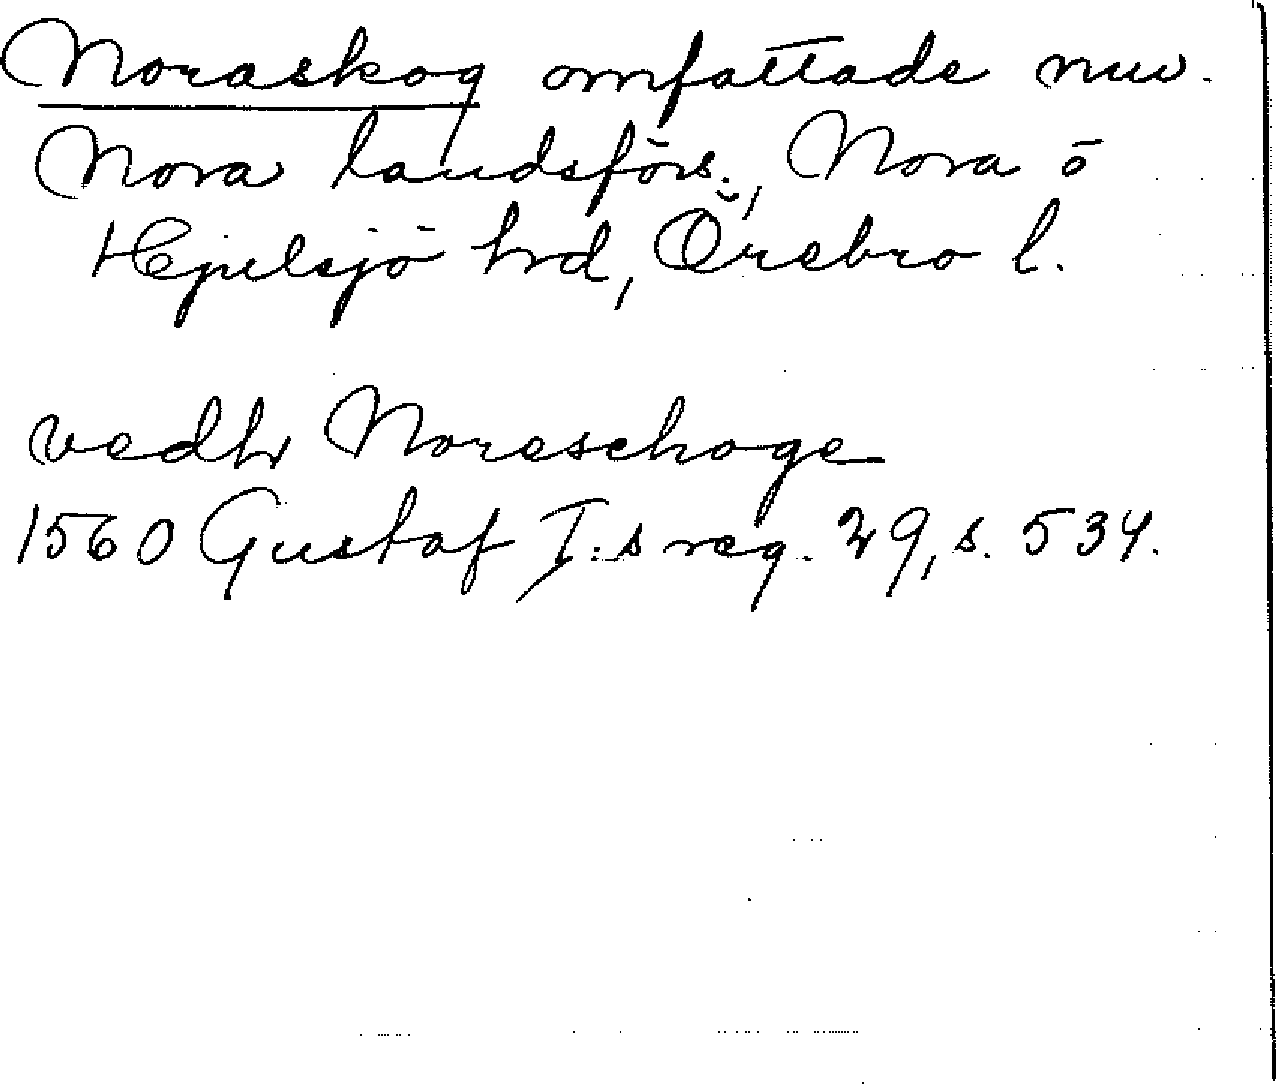 Noraskog omfattade nuv.
Nora landsförs., Nora o
Hjulsjö hrd, Örebro l.
vedh Noreschoge
1560 Gustaf I:s reg. 29, s. 534.